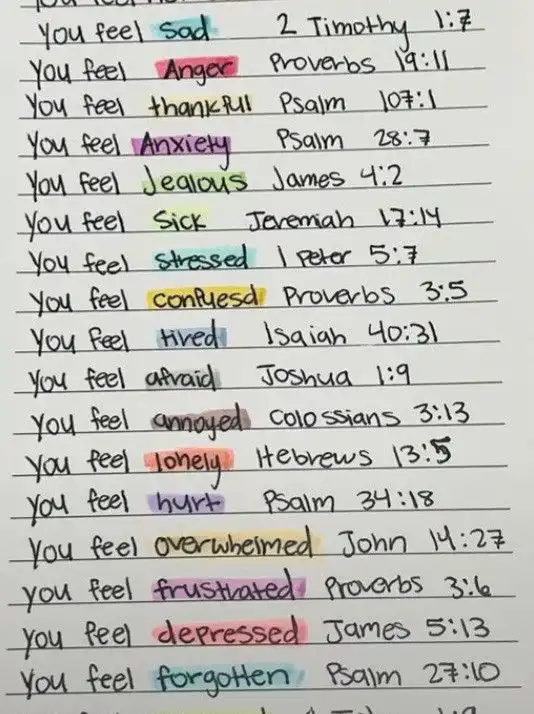 You feel sad 2 Timothy 1:7
You feel Anger Proverbs 19:11
You feel thankful Psalm 107:1
You feel Anxiety Psalm 28:7
You feel Jealous James 4:2
You feel Sick Jeremiah 17:14
You feel stressed 1 Peter 5:7
You feel confuesd Proverbs 3:5
You feel tired Isaiah 40:31
You feel afraid Joshua 1:9
You feel annoyed Colossians 3:13
You feel lonely Hebrews 13:5
You feel hurt Psalm 34:18
You feel overwhelmed John 14:27
you feel frustrated Proverbs 3:6
you feel depressed James 5:13
You feel forgotten Psalm 27:10